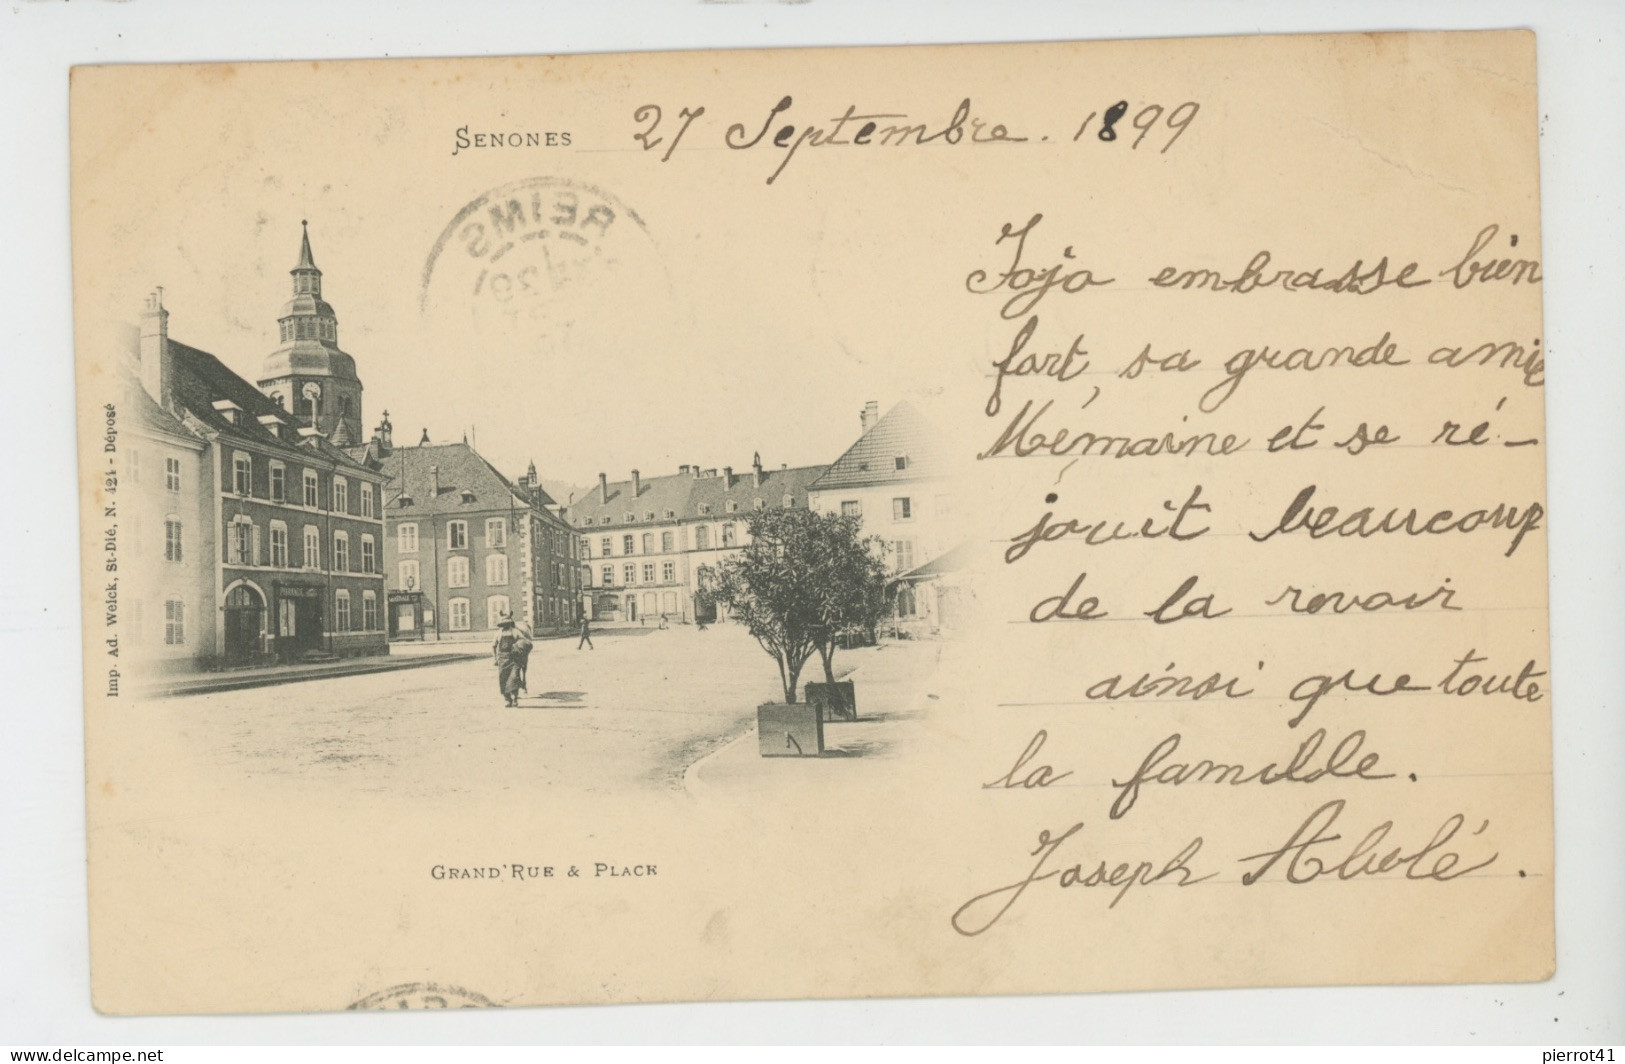 SENONES 27 Septembre. 1899
REIMS
Jojo embrasse bien
fort, sa grande amie
Mémaine et se ré-
jouit beaucoup
de la revoir
ainsi que toute
la famille.
Joseph
Imp. Ad. Weick, St-Dié, N. 424 - Déposé
GRAND'RUE & PLACE
pierrot41